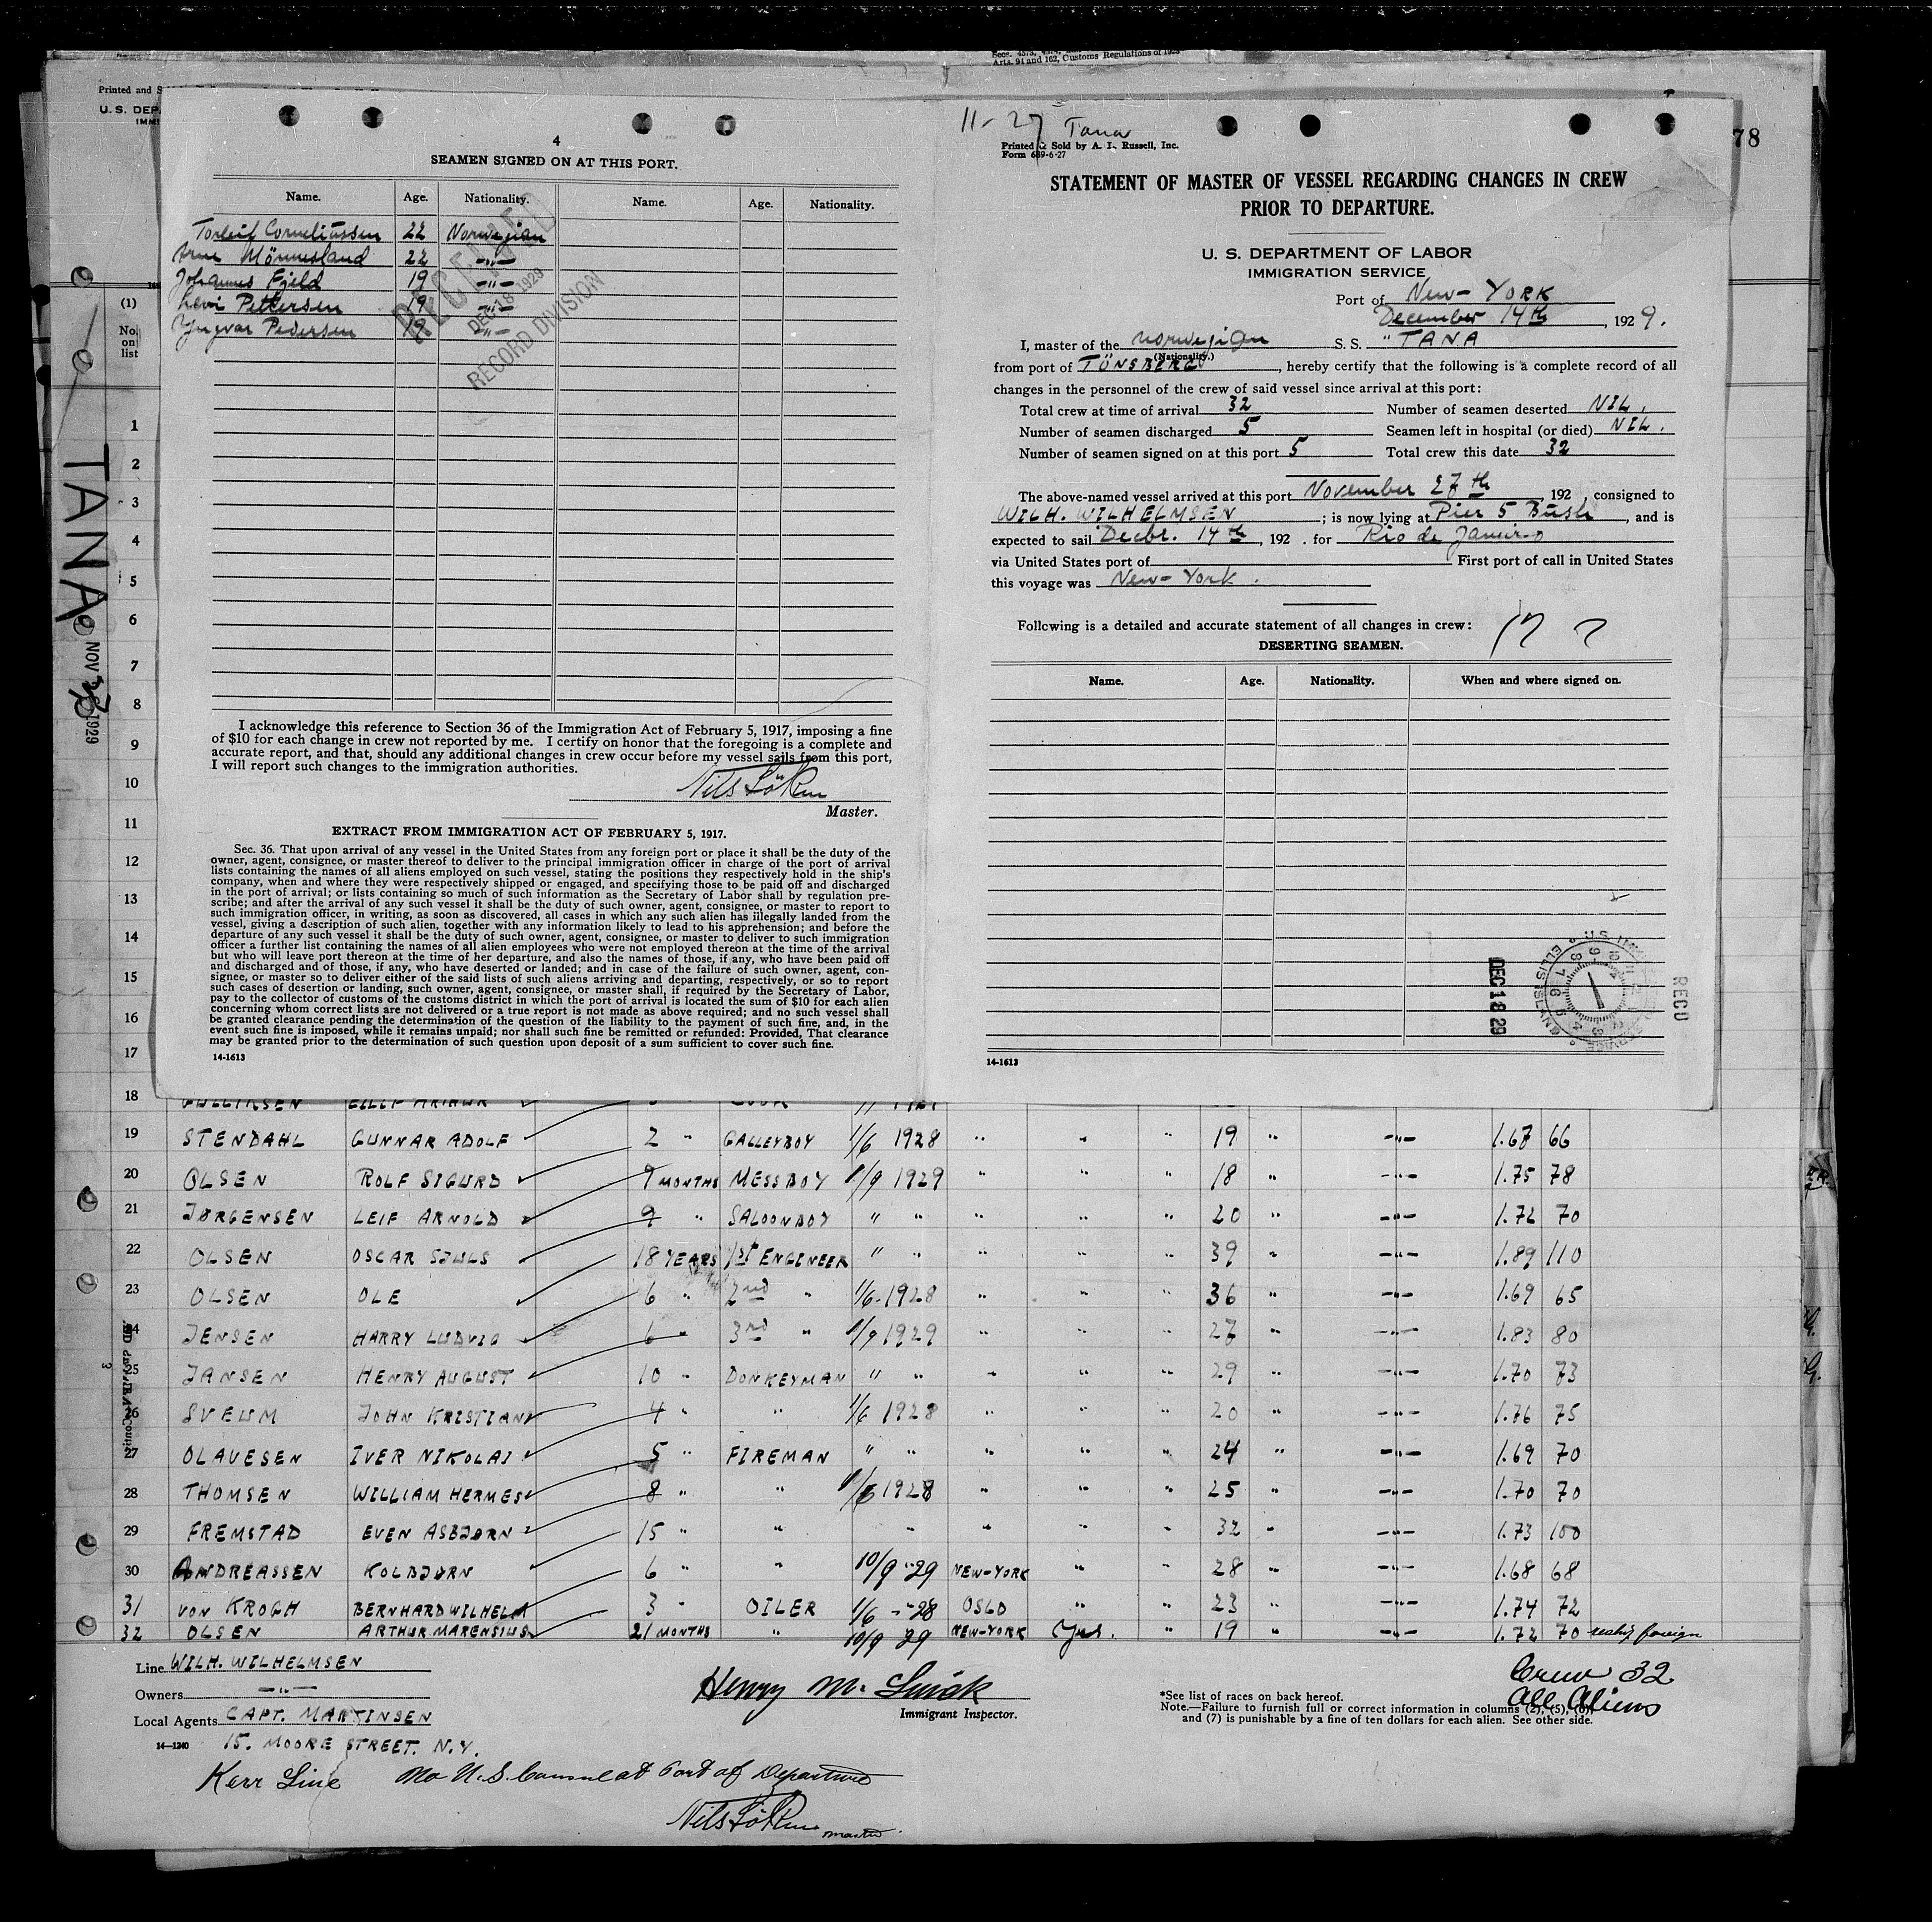 Secs. 4573, 4574,
Arts. 91 and 162, Customs Regulations of 1923
Printed and S
U. S. DEP
IMMI
78
4
SEAMEN SIGNED ON AT THIS PORT.
Name. Age. Nationality. Name. Age. Nationality.
Torleif Corneliussen 22 Norwegian
Arne Mönnesland 22 -"-
Johannes Fjeld 19 -"-
Levi Pettersen 19 -"-
Yngvar Pedersen 19 -"-
RECEIVED
DEC 18 1929
RECORD DIVISION
I acknowledge this reference to Section 36 of the Immigration Act of February 5, 1917, imposing a fine
of $10 for each change in crew not reported by me. I certify on honor that the foregoing is a complete and
accurate report, and that, should any additional changes in crew occur before my vessel sails from this port,
I will report such changes to the immigration authorities.
Nils Löken
Master.
EXTRACT FROM IMMIGRATION ACT OF FEBRUARY 5, 1917.
Sec. 36. That upon arrival of any vessel in the United States from any foreign port or place it shall be the duty of the
owner, agent, consignee, or master thereof to deliver to the principal immigration officer in charge of the port of arrival
lists containing the names of all aliens employed on such vessel, stating the positions they respectively hold in the ship's
company, when and where they were respectively shipped or engaged, and specifying those to be paid off and discharged
in the port of arrival; or lists containing so much of such information as the Secretary of Labor shall by regulation pre-
scribe; and after the arrival of any such vessel it shall be the duty of such owner, agent, consignee, or master to report to
such immigration officer, in writing, as soon as discovered, all cases in which any such alien has illegally landed from the
vessel, giving a description of such alien, together with any information likely to lead to his apprehension; and before the
departure of any such vessel it shall be the duty of such owner, agent, consignee, or master to deliver to such immigration
officer a further list containing the names of all alien employees who were not employed thereon at the time of the arrival
but who will leave port thereon at the time of her departure, and also the names of those, if any, who have been paid off
and discharged and of those, if any, who have deserted or landed; and in case of the failure of such owner, agent, con-
signee, or master so to deliver either of the said lists of such aliens arriving and departing, respectively, or so to report
such cases of desertion or landing, such owner, agent, consignee, or master shall, if required by the Secretary of Labor,
pay to the collector of customs of the customs district in which the port of arrival is located the sum of $10 for each alien
concerning whom correct lists are not delivered or a true report is not made as above required; and no such vessel shall
be granted clearance pending the determination of the question of the liability to the payment of such fine, and, in the
event such fine is imposed, while it remains unpaid; nor shall such fine be remitted or refunded: Provided, That clearance
may be granted prior to the determination of such question upon deposit of a sum sufficient to cover such fine.
14-1613
11-27 Tana
Printed & Sold by A. L. Russell, Inc.
Form 689-6-27
STATEMENT OF MASTER OF VESSEL REGARDING CHANGES IN CREW
PRIOR TO DEPARTURE.
U. S. DEPARTMENT OF LABOR
IMMIGRATION SERVICE
Port of New-York
December 14th, 1929.
I, master of the norwegian S. S. "TANA
(Nationality.)
from port of TÖNSBERG, hereby certify that the following is a complete record of all
changes in the personnel of the crew of said vessel since arrival at this port:
Total crew at time of arrival 32 Number of seamen deserted NIL.
Number of seamen discharged 5 Seamen left in hospital (or died) NIL.
Number of seamen signed on at this port 5 Total crew this date 32
The above-named vessel arrived at this port November 27th, 192 , consigned to
WILH. WILHELMSEN; is now lying at Pier 5 Bush, and is
expected to sail Decbr. 14th, 192 . for Rio de Janeiro
via United States port of First port of call in United States
this voyage was New-York.
Following is a detailed and accurate statement of all changes in crew:
DESERTING SEAMEN.
Name. Age. Nationality. When and where signed on.
DEC 18 29
RECD
14-1613
TANA
NOV 1929
(1)
No.
on
list
1
2
3
4
5
6
7
8
9
10
11
12
13
14
15
16
17
18
19 STENDAHL GUNNAR ADOLF 2 " GALLEYBOY 1/6 1928 " " " 19 " -"- 1.67 66
20 OLSEN ROLF SIGURD 9 MONTHS MESSBOY 1/9 1929 " " " 18 " -"- 1.75 78
21 JØRGENSEN LEIF ARNOLD 9 " SALOONBOY " " " " " 20 " -"- 1.72 70
22 OLSEN OSCAR SJULS 18 YEARS 1st ENGINEER " " " " " 39 " -"- 1.89 110
23 OLSEN OLE 6 " 2nd " 1/6-1928 " " " 36 " -"- 1.69 65
24 JENSEN HARRY LUDVIG 6 " 3rd " 1/9 1929 " " " 27 " -"- 1.83 80
25 JANSEN HENRY AUGUST 10 " DONKEYMAN " " " " " 29 " -"- 1.70 73
26 SVEUM JOHN KRISTIAN 4 " " 1/6 1928 " " " 20 " -"- 1.76 75
27 OLAVESEN IVER NIKOLAI 5 " FIREMAN " " " " " 24 " -"- 1.69 70
28 THOMSEN WILLIAM HERMES 8 " " 1/6 1928 " " " 25 " -"- 1.70 70
29 FREMSTAD EVEN ASBJØRN 15 " " " " " " 32 " -"- 1.73 100
30 ANDREASSEN KOLBJØRN 6 " " 10/9 -29 NEW-YORK " " 28 " -"- 1.68 68
31 VON KROGH BERNHARD WILHELM 3 " OILER 1/6 -28 OSLO " " 23 " -"- 1.74 72
32 OLSEN ARTHUR MARENSIUS 21 MONTHS " 10/9 29 NEW-YORK Yes. " 19 " -"- 1.72 70 reship foreign
Line WILH. WILHELMSEN
Owners -"-
Local Agents CAPT. MARTINSEN
14-1240 15. MOORE STREET. N.Y.
Henry M. Smick
Immigrant Inspector.
*See list of races on back hereof.
Note.—Failure to furnish full or correct information in columns (2), (5), (6),
and (7) is punishable by a fine of ten dollars for each alien. See other side.
Crew 32
All Aliens
Kerr Line No U.S. Consul at Port of Departure
Nils Löken master.